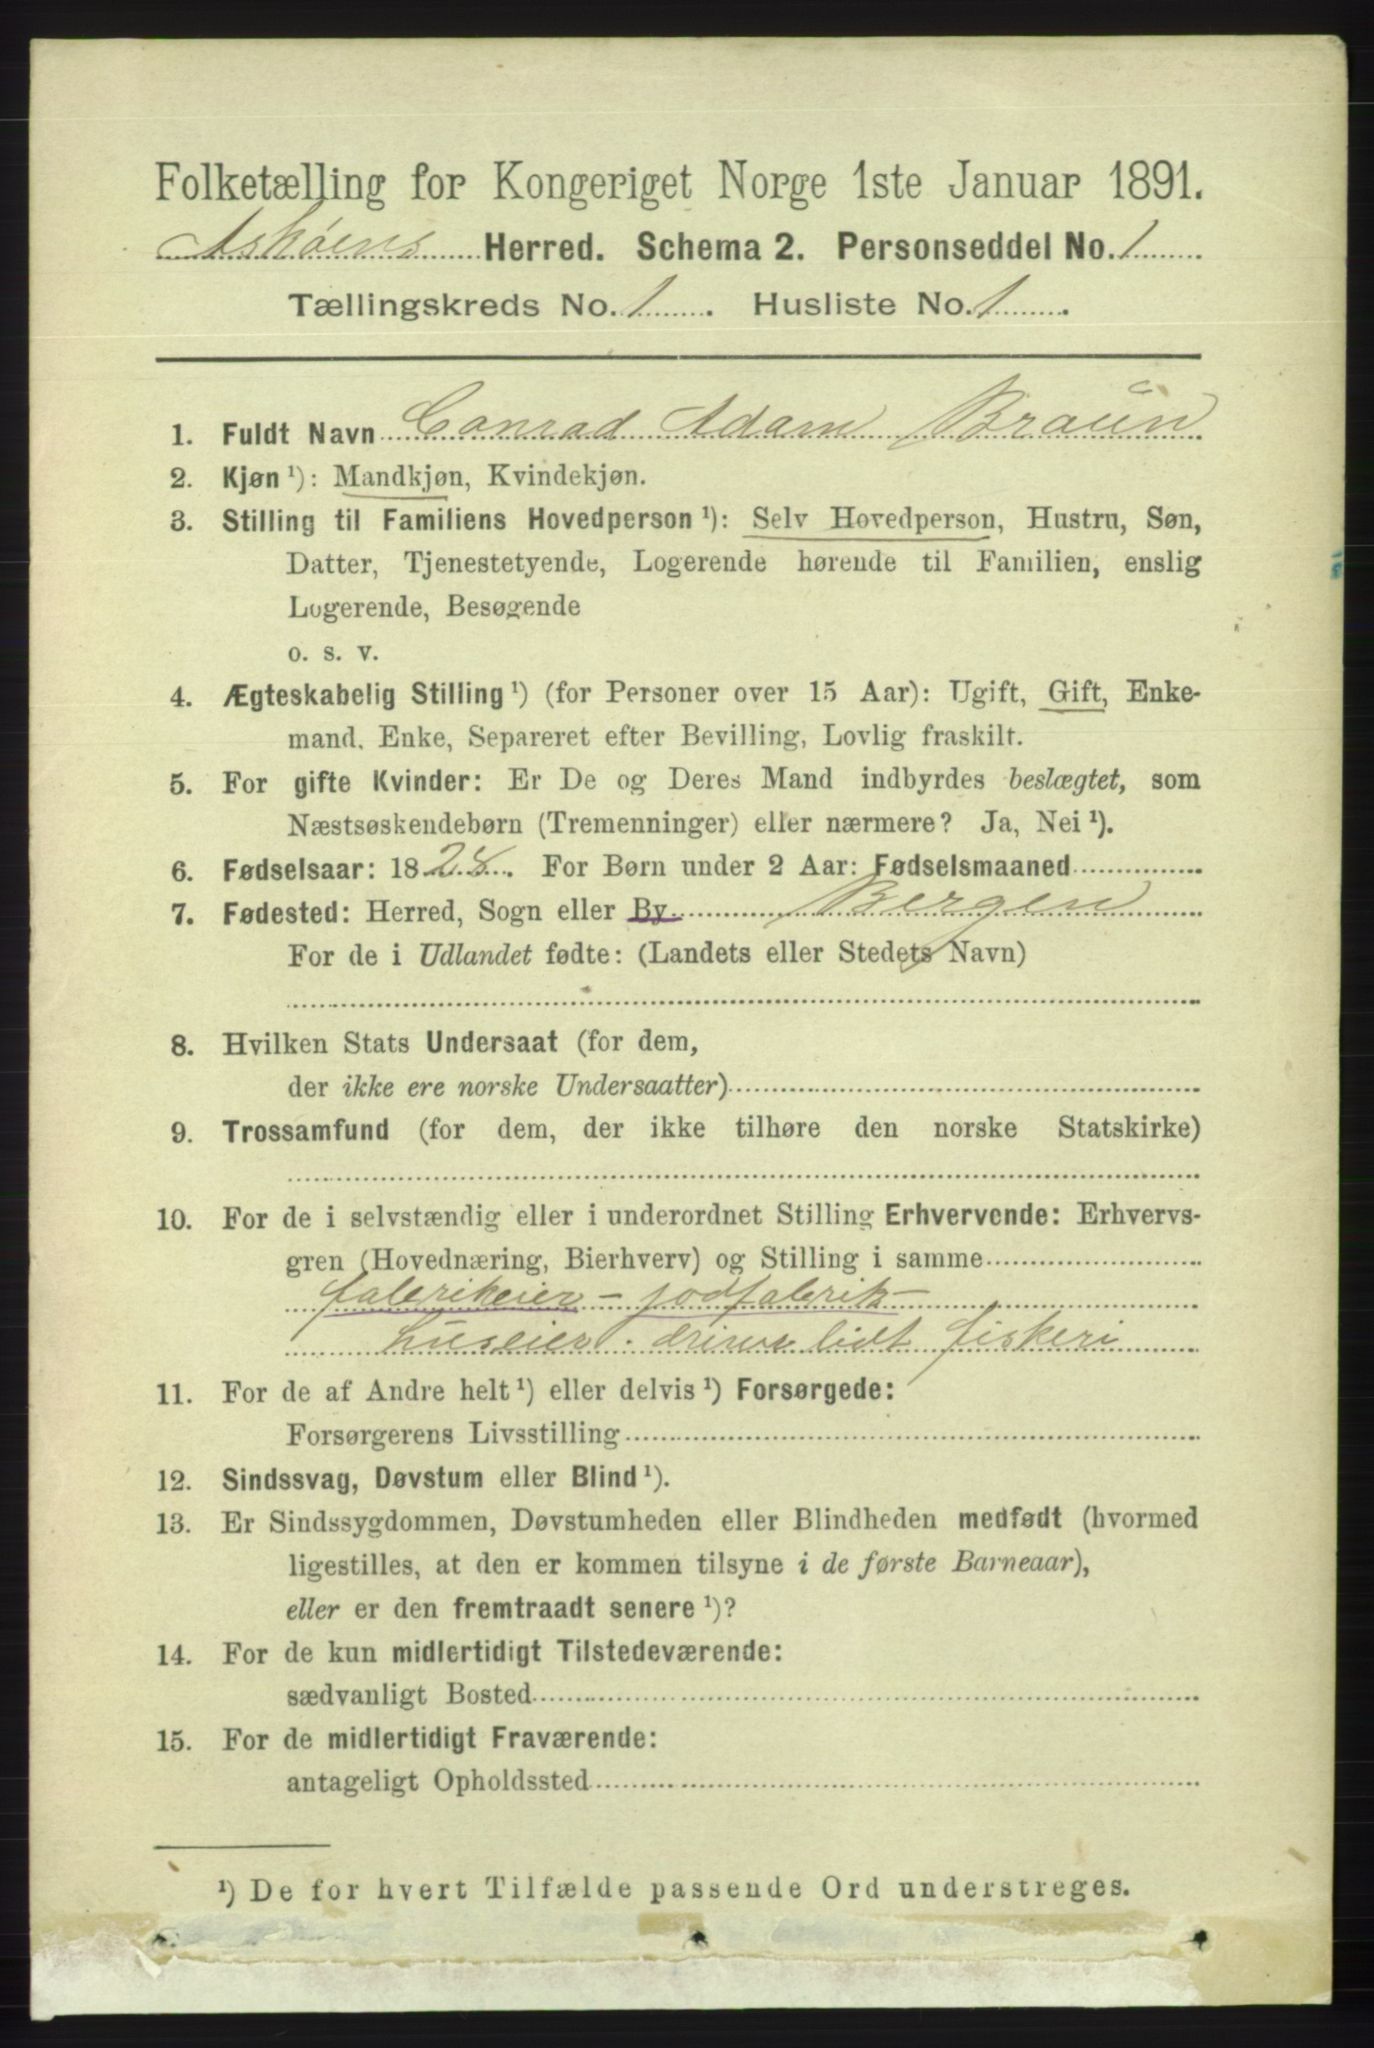 Folketælling for Kongeriget Norge 1ste Januar 1891.
Askøens Herred. Schema 2. Personseddel No. 1
Tællingskreds No. 1. Husliste No. 1.
1. Fuldt Navn Conrad Adam Braun
2. Kjøn ¹): Mandkjøn, Kvindekjøn.
3. Stilling til Familiens Hovedperson ¹): Selv Hovedperson, Hustru, Søn,
Datter, Tjenestetyende, Logerende hørende til Familien, enslig
Logerende, Besøgende
o. s. v.
4. Ægteskabelig Stilling ¹) (for Personer over 15 Aar): Ugift, Gift, Enke-
mand, Enke, Separeret efter Bevilling, Lovlig fraskilt.
5. For gifte Kvinder: Er De og Deres Mand indbyrdes beslægtet, som
Næstsøskendebørn (Tremenninger) eller nærmere? Ja, Nei ¹).
6. Fødselsaar: 1828. For Børn under 2 Aar: Fødselsmaaned
7. Fødested: Herred, Sogn eller By Bergen
For de i Udlandet fødte: (Landets eller Stedets Navn)
8. Hvilken Stats Undersaat (for dem,
der ikke ere norske Undersaatter)
9. Trossamfund (for dem, der ikke tilhøre den norske Statskirke)
10. For de i selvstændig eller i underordnet Stilling Erhvervende: Erhvervs-
gren (Hovednæring, Bierhverv) og Stilling i samme
fabrikeier - jodfabrik -
huseier. driver lidt fiskeri
11. For de af Andre helt ¹) eller delvis ¹) Forsørgede:
Forsørgerens Livsstilling
12. Sindssvag, Døvstum eller Blind ¹).
13. Er Sindssygdommen, Døvstumheden eller Blindheden medfødt (hvormed
ligestilles, at den er kommen tilsyne i de første Barneaar),
eller er den fremtraadt senere ¹)?
14. For de kun midlertidigt Tilstedeværende:
sædvanligt Bosted
15. For de midlertidigt Fraværende:
antageligt Opholdssted
¹) De for hvert Tilfælde passende Ord understreges.